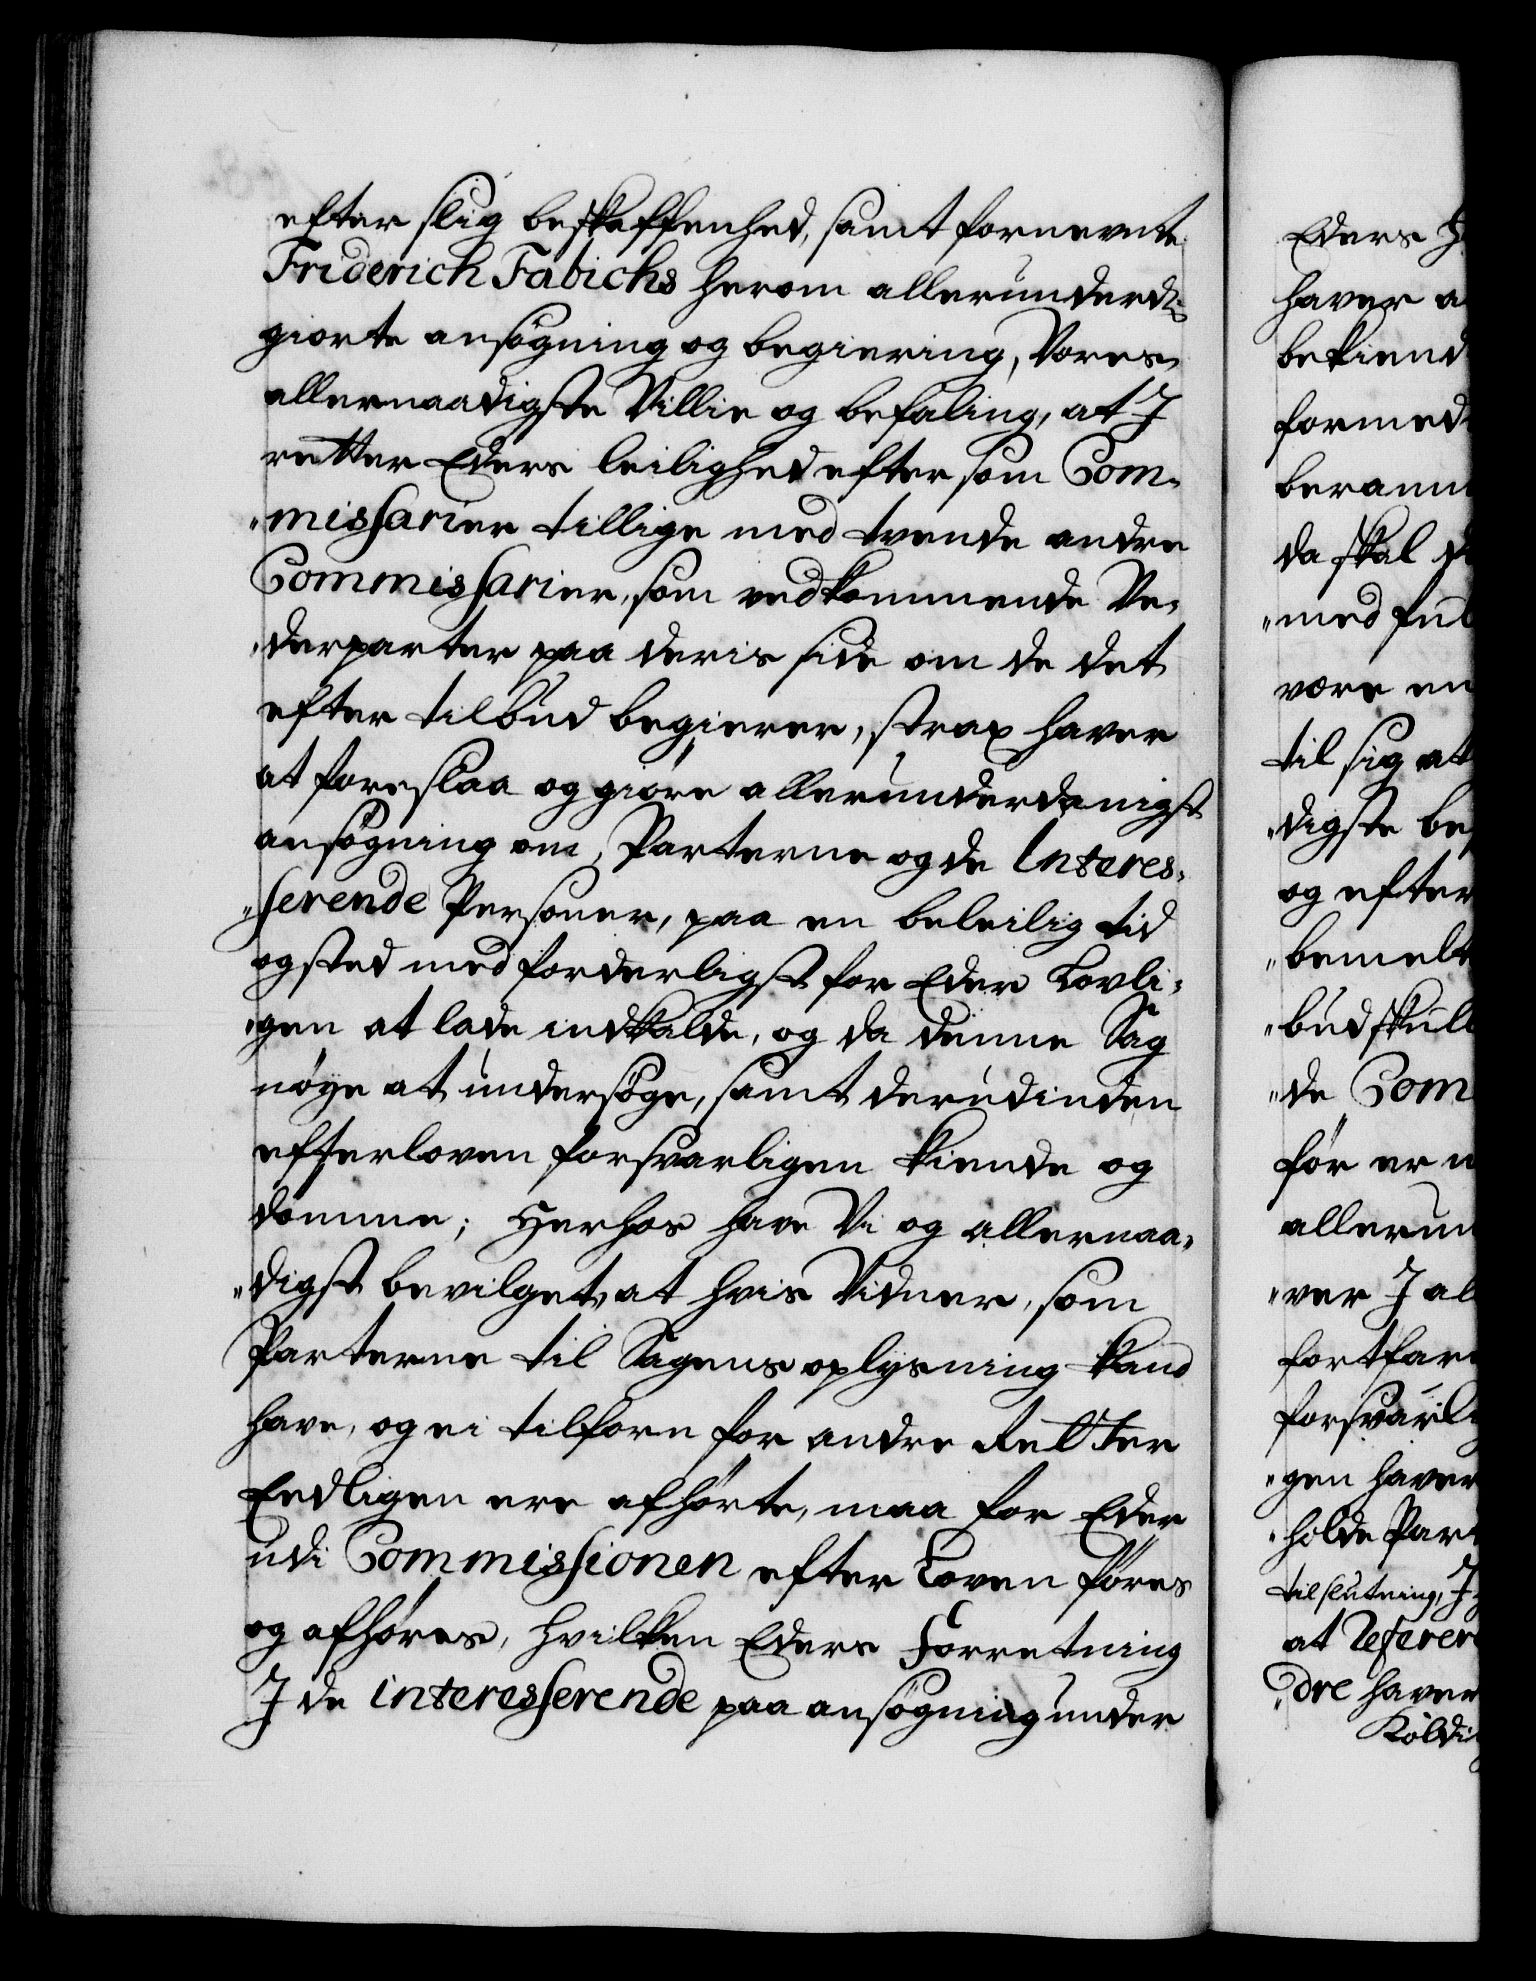 efter slig beskaffenhed, samt fornevnte
Friderich Fabichs herom allerunderd:
giorte ansøgning og begiering, Vores
allernaadigste Villie og befaling, at I
retter Eders leilighed efter som Com-
missarier tillige med tvende andre
Commissarier, som vedkommende Ve-
derparter paa deris side om de det
efter tilbud begierer, strax haver
at foreslaa og giøre allerunderdanigst
ansøgning om, Parterne og de Interes-
serende Personer, paa en beleilig tid
og sted med forderligst for Eder Lovli-
gen at lade indkalde, og da denne Sag
nøye at undersøge, samt derudinden
efterloven forsvarligen kiende og
dømme; Herhos have Vi og allernaa-
digst bevilget, at hvis Vidner, som
Parterne til Sagens oplysning kand
have, og ei tilforn for andre Retter
Eedligen ere afhørte, maa for Eder
udi Commissionen efter Loven føres
og afhøres, hvilken Eders Forretning
I de interesserende paa ansøgning under
Eders
haver
bekiend
formed
beram
da skal
med ful
være en
til sig at
digste be
og efter
bemelt
bud skul
de Com
før er
allerun
ver I al
fortfar
forsvarli
gen haver
holde Part
tilslutning, I
at Referer
dre haver
Koldi